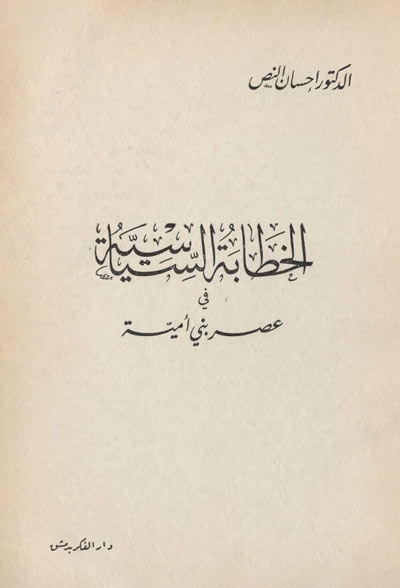 الدكتور إحسان النص
الخطابة السياسية
في
عصر بني أمية
دار الفكر بدمشق